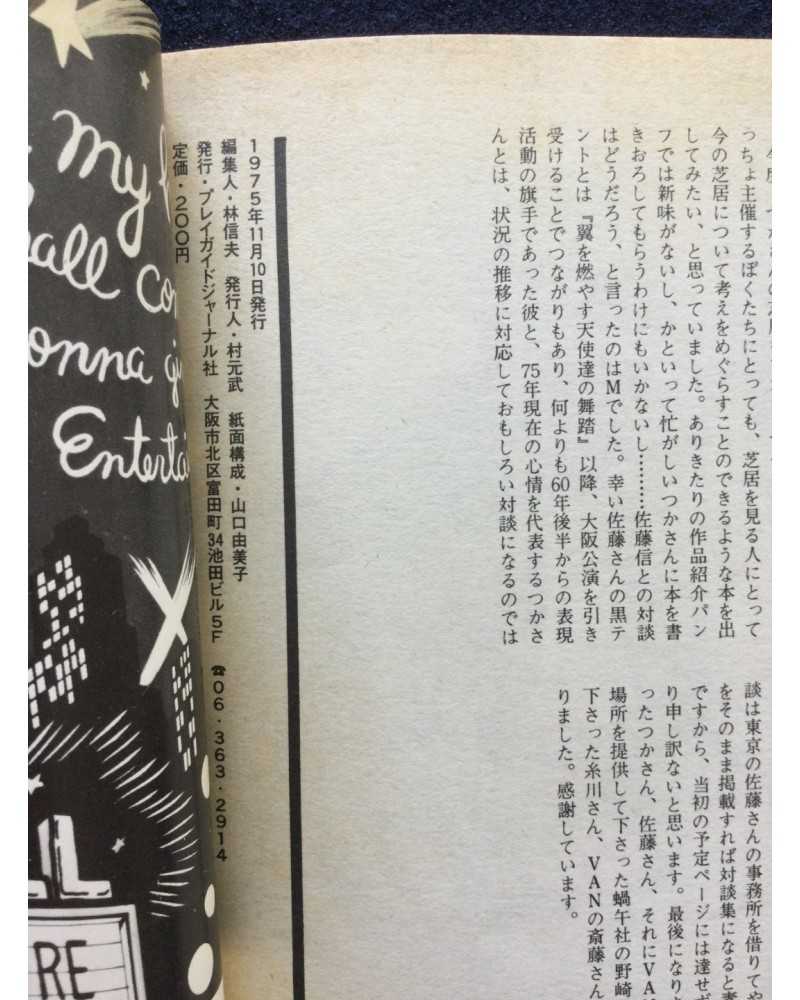 っちょ主催するぼくたちにとっても、芝居を見る人にとって
今の芝居について考えをめぐらすことのできるような本を出
してみたい、と思っていました。ありきたりの作品紹介パン
フでは新味がないし、かといって忙がしいつかさんに本を書
きおろしてもらうわけにもいかないし………佐藤信との対談
はどうだろう、と言ったのはMでした。幸い佐藤さんの黒テ
ントとは『翼を燃やす天使達の舞踏』以降、大阪公演を引き
受けることでつながりもあり、何よりも60年後半からの表現
活動の旗手であった彼と、75年現在の心情を代表するつかさ
んとは、状況の推移に対応しておもしろい対談になるのでは
談は東京の佐藤さんの事務所を借りてや
をそのまま掲載すれば対談集になると
ですから、当初の予定ページには達せず
り申し訳ないと思います。最後になり
ったつかさん、佐藤さん、それにVA
場所を提供して下さった蝸牛社の野崎
下さった糸川さん、VANの斎藤さん
りました。感謝しています。
1975年11月10日発行
編集人・林信夫 発行人・村元武 紙面構成・山口由美子
発行・プレイガイドジャーナル社 大阪市北区富田町34池田ビル5F ☎06・363・2914
定価・200円
my
all
onna
Enterta
LL
RE